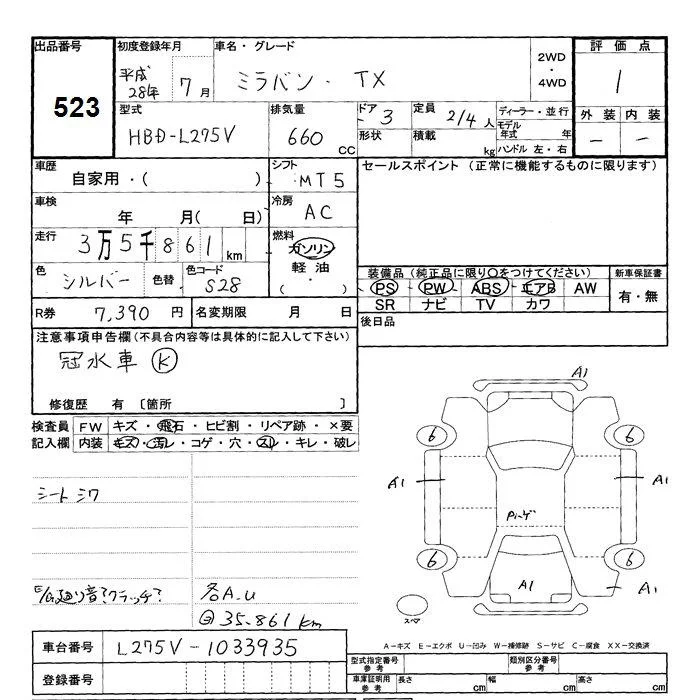 出品番号
523
初度登録年月
平成
28年 7月
車名・グレード
ミラバン・ TX
2WD
・
4WD
評価点
1
型式
HBD-L275V
排気量
660
CC
ドア
・3
形状
定員
2/4人
積載
kg
ディーラー・並行
モデル
年式 年
ハンドル 左・右
外装 内装
― ―
車歴
自家用・( )
シフト
・MT5
セールスポイント (正常に機能するものに限ります)
車検
年 月( 日)
冷房
AC
走行
3万5千861km
燃料
ガソリン
軽油
・( )
色
シルバー
色替
色コード
S28
装備品(純正品に限り○をつけてください)
PS PW ABS エアB AW
SR ナビ TV カワ
新車保証書
有・無
R券
7,390 円
名変期限 月 日
後日品
注意事項申告欄(不具合内容等は具体的に記入して下さい)
冠水車 K
修復歴 有 〔箇所 〕
検査員
記入欄
FW キズ・飛石・ヒビ割・リペア跡・×要
内装 キズ・汚レ・コゲ・穴・スレ・キレ・破レ
シートシワ
各A.U
35.861km
A1
6
6
A1
A1
6
6
A1
A1
車台番号
L275V-1033935
登録番号
A-キズ E-エクボ U-凹み W-補修跡 S-サビ C-腐食 XX-交換済
型式指定番号
参考
類別区分番号
参考
車庫証明用
参考
長さ cm
幅 cm
高さ cm